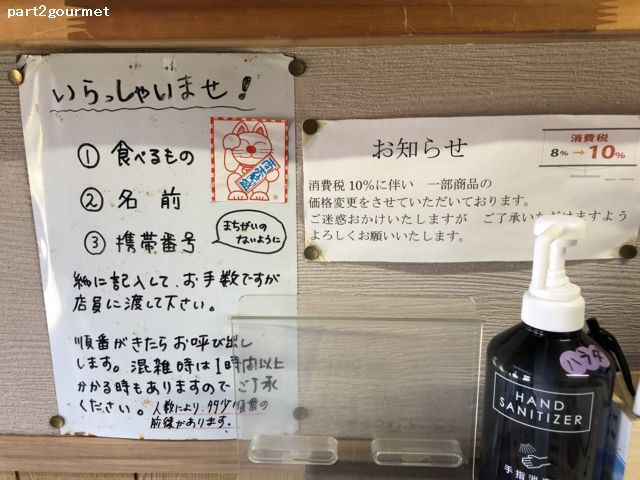 part2gourmet
いらっしゃいませ!
① 食べるもの
② 名前
③ 携帯番号
まちがいの
ないように
紙に記入して、お手数ですが
店員に渡して下さい。
順番がきたらお呼び出し
します。混雑時は1時間以上
かかる時もありますのでご了承
ください。人数により、多少順番の
前後があります。
お知らせ
消費税
8% → 10%
消費税 10%に伴い 一部商品の
価格変更をさせていただいております。
ご迷惑おかけいたしますが ご了承いただけますよう
よろしくお願いいたします。
HAND
SANITIZER
手指消